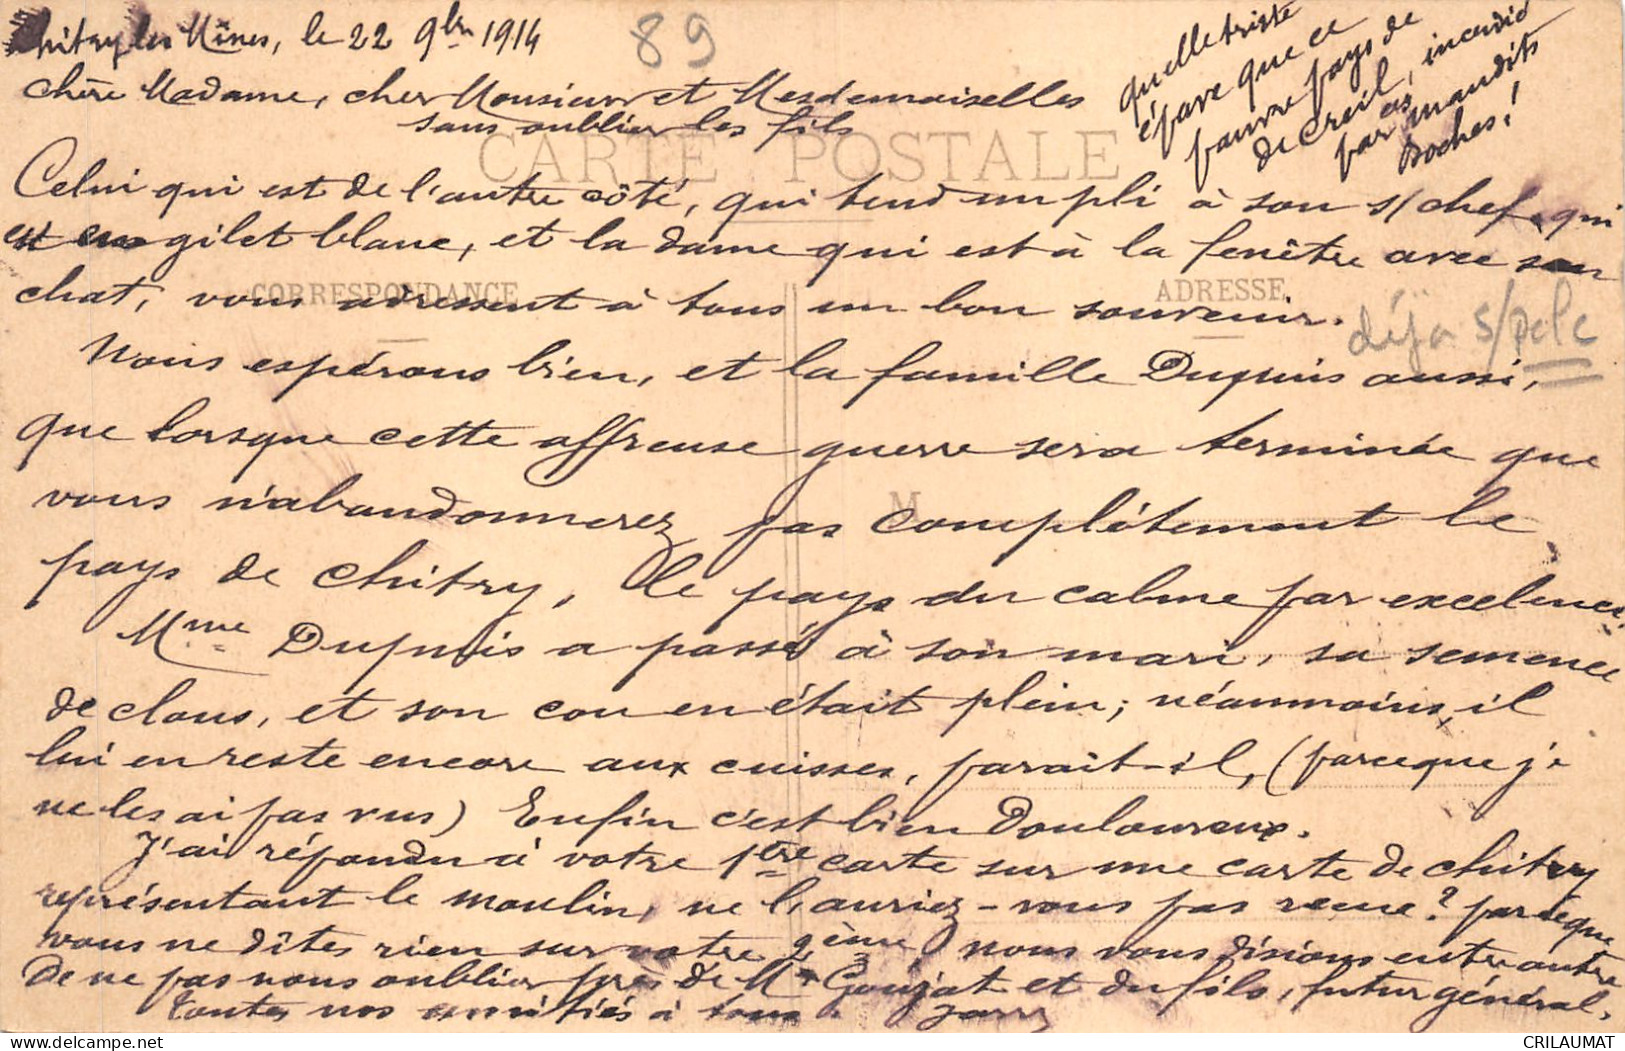 Chitry les Mines, le 22 9bre 1914
89
Chère Madame, cher Monsieur et Mesdemoiselles
sans oublier les fils
quelle triste
épave que ce
pauvre pays de
de Creil, incendié
par as maudits
Boches!
CARTE POSTALE
Celui qui est de l'autre côté, qui tend un pli à son s/chef qui
est en gilet blanc, et la dame qui est à la fenêtre avec son
CORRESPONDANCE
ADRESSE
chat, vous adressent à tous un bon souvenir.
déjà s/
Nous espérons bien, et la famille Dupuis aussi,
que lorsque cette affreuse guerre sera terminée que
M
vous n'abandonnerez pas complètement le
pays de Chitry, le pays du calme par excelence,
Mme Dupuis a passé à son mari, sa semence
de clous, et son cou en était plein; néanmoins, il
lui en reste encore aux cuisses, parait-il, (parceque je
ne les ai pas vus) Enfin c'est bien douloureux.
J'ai répondu à votre 1ère carte sur une carte de Chitry
représentant le moulin, ne l'auriez-vous pas reçue? parceque
vous ne dîtes rien sur votre 2ème, nous vous disions entre autre
de ne pas nous oublier près de Mr Goujat et du fils, futur général.
toutes nos amitiés à tous.
CRILAUMAT